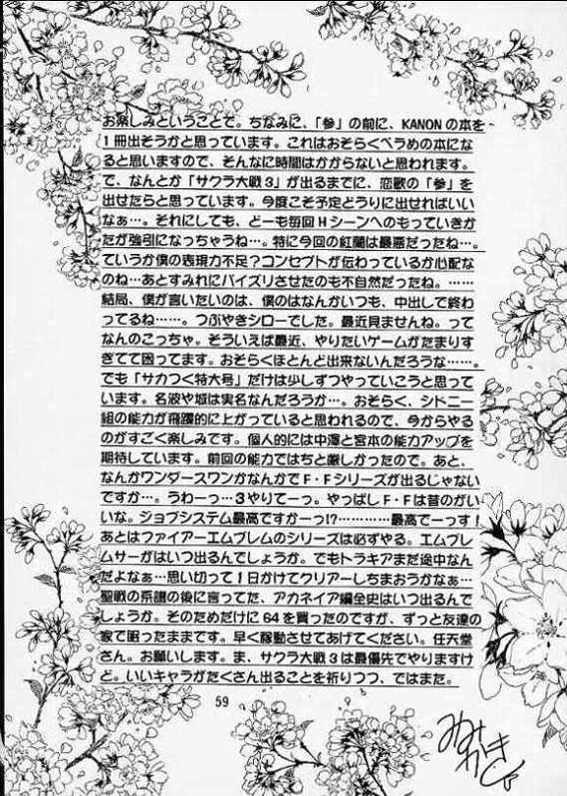 お楽しみということで。ちなみに、「参」の前に、KANONの本を
1冊出そうかと思っています。これはおそらくペラめの本にな
ると思いますので、そんなに時間はかからないと思われます。
で、なんとか「サクラ大戦3」が出るまでに、恋歌の「参」を
出せたらと思っています。今度こそ予定どうりに出せればいい
なぁ…。それにしても、どーも毎回Hシーンへのもっていきか
たが強引になっちゃうね…。特に今回の紅蘭は最悪だったね…。
ていうか僕の表現力不足？コンセプトが伝わっているか心配な
のね…あとすみれにパイズリさせたのも不自然だったね。……
結局、僕が言いたいのは、僕のはなんかいつも、中出しで終わ
ってるね……。つぶやきシローでした。最近見ませんね。って
なんのこっちゃ。そういえば最近、やりたいゲームがたまりす
ぎてて困ってます。おそらくほとんど出来ないんだろうな……。
でも「サカつく特大号」だけは少しずつやっていこうと思って
います。名波や城は実名なんだろうか…。おそらく、シドニー
組の能力が飛躍的に上がっていると思われるので、今からやる
のがすごく楽しみです。個人的には中澤と宮本の能力アップを
期待しています。前回の能力ではちと厳しかったので。あと、
なんかワンダースワンかなんかでF・Fシリーズが出るじゃない
ですか…。うわーっ…3やりてーっ。やっぱしF・Fは昔のがい
いな。ジョブシステム最高ですかーっ!?…………最高でーっす！
あとはファイアーエムブレムのシリーズは必ずやる。エムブレ
ムサーガはいつ出るんでしょうか。でもトラキアまだ途中なん
だよなぁ…思い切って1日かけてクリアーしちまおうかなぁ…
聖戦の系譜の後に言ってた、アカネイア編全史はいつ出るんで
しょうか。そのためだけに64を買ったのですが、ずっと友達の
家で眠ったままです。早く稼動させてあげてください。任天堂
さん。お願いします。ま、サクラ大戦3は最優先でやりますけ
ど。いいキャラがたくさん出ることを祈りつつ、ではまた。
59